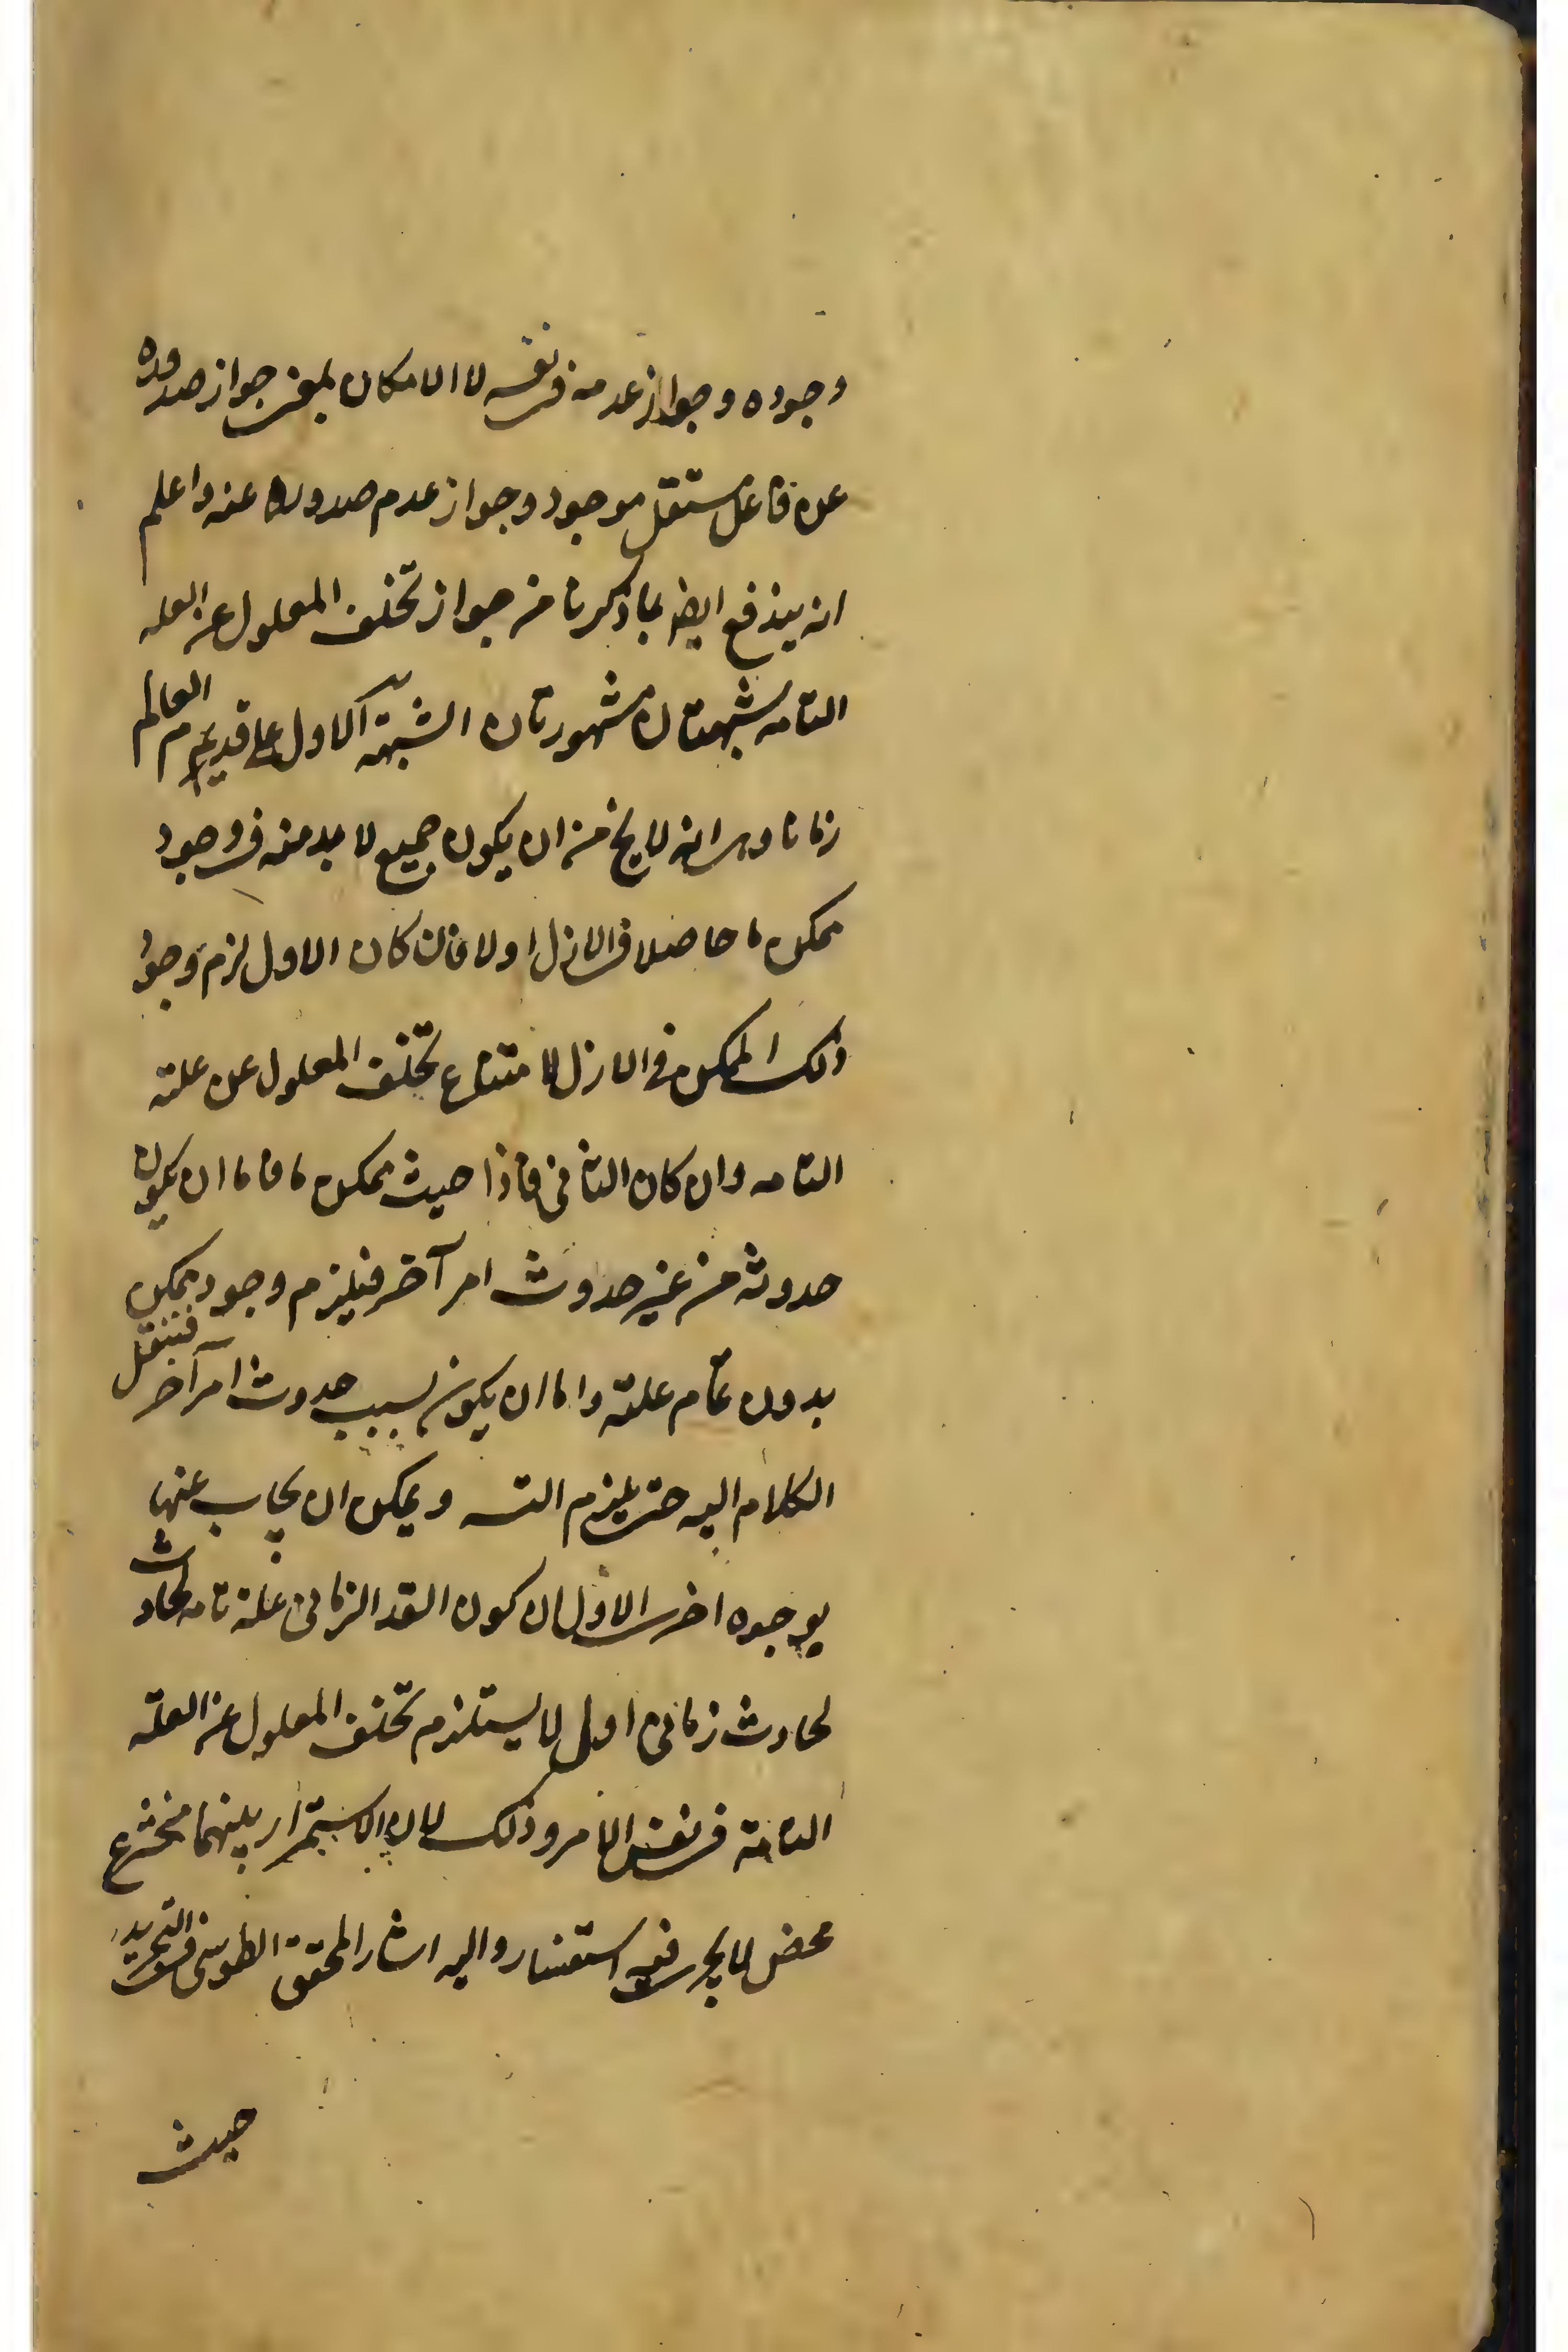 وجوده وجواز عدمه في نفسه لا الامكان بمعنى جواز صدوره
عن فاعل مستقل موجود وجواز عدم صدوره عنه واعلم
انه يندفع ايضا بما ذكرنا من جواز تخلف المعلول عن العله
التامه شبهتان مشهورتان الشبهة الاولى على قدم العالم
زمانا وهى انه لا يخ من ان يكون جميع لا بد منه في وجود
ممكن ما حاصلا في الازل اولا فان كان الاول لزم وجود
ذلك الممكن في الازل لامتناع تخلف المعلول عن علته
التامه وان كان الثاني فاذا حدث ممكن ما فاما ان يكون
حدوثه من غير حدوث امر آخر فيلزم وجود ممكن
بدون تمام علته واما ان يكون بسبب حدوث امر آخر فننقل
الكلام اليه حتى يلزم التسـ ويمكن ان يجاب عنها
بوجوه اخرى الاول ان كون القد الزماني علة تامه لحادث
لحادث زماني اول لا يستلزم تخلف المعلول عن العلة
التامة في نفس الامر وذلك لان الاستمرار بينهما مخترع
محض لا يجرى فيه استفسار واليه اشار المحقق الطوسي في التجريد
حيث